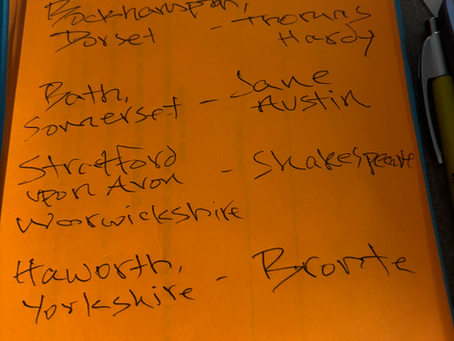 Bockhampton,
Dorset - Thomas
Hardy
Bath,
Somerset - Jane
Austin
Stratford
upon Avon - Shakespeare
Warwickshire
Haworth,
Yorkshire - Bronte